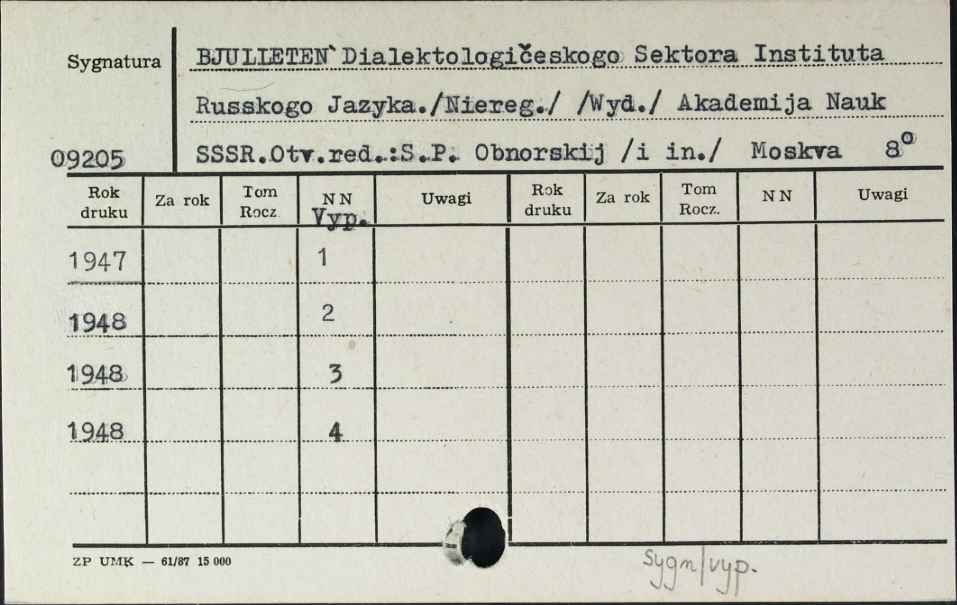 Sygnatura BJULLETEN` Dialektologičeskogo Sektora Instituta
Russkogo Jazyka./Niereg./ /Wyd./ Akademija Nauk
09205 SSSR.Otv.red.:S.P. Obnorskij /i in./ Moskva 8°
Rok druku Za rok Tom Rocz. NN Vyp. Uwagi Rok druku Za rok Tom Rocz. NN Uwagi
1947 1
1948 2
1948 3
1948 4
ZP UMK — 61/87 15 000
sygn/vyp.